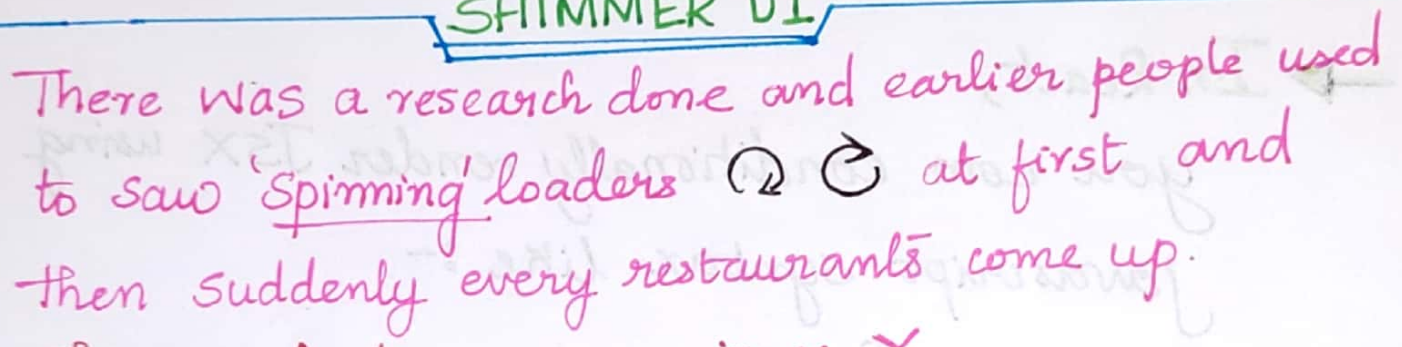 SHIMMER UI
There was a research done and earlier people used
to saw 'spinning' loaders at first and
then suddenly every restaurants come up.